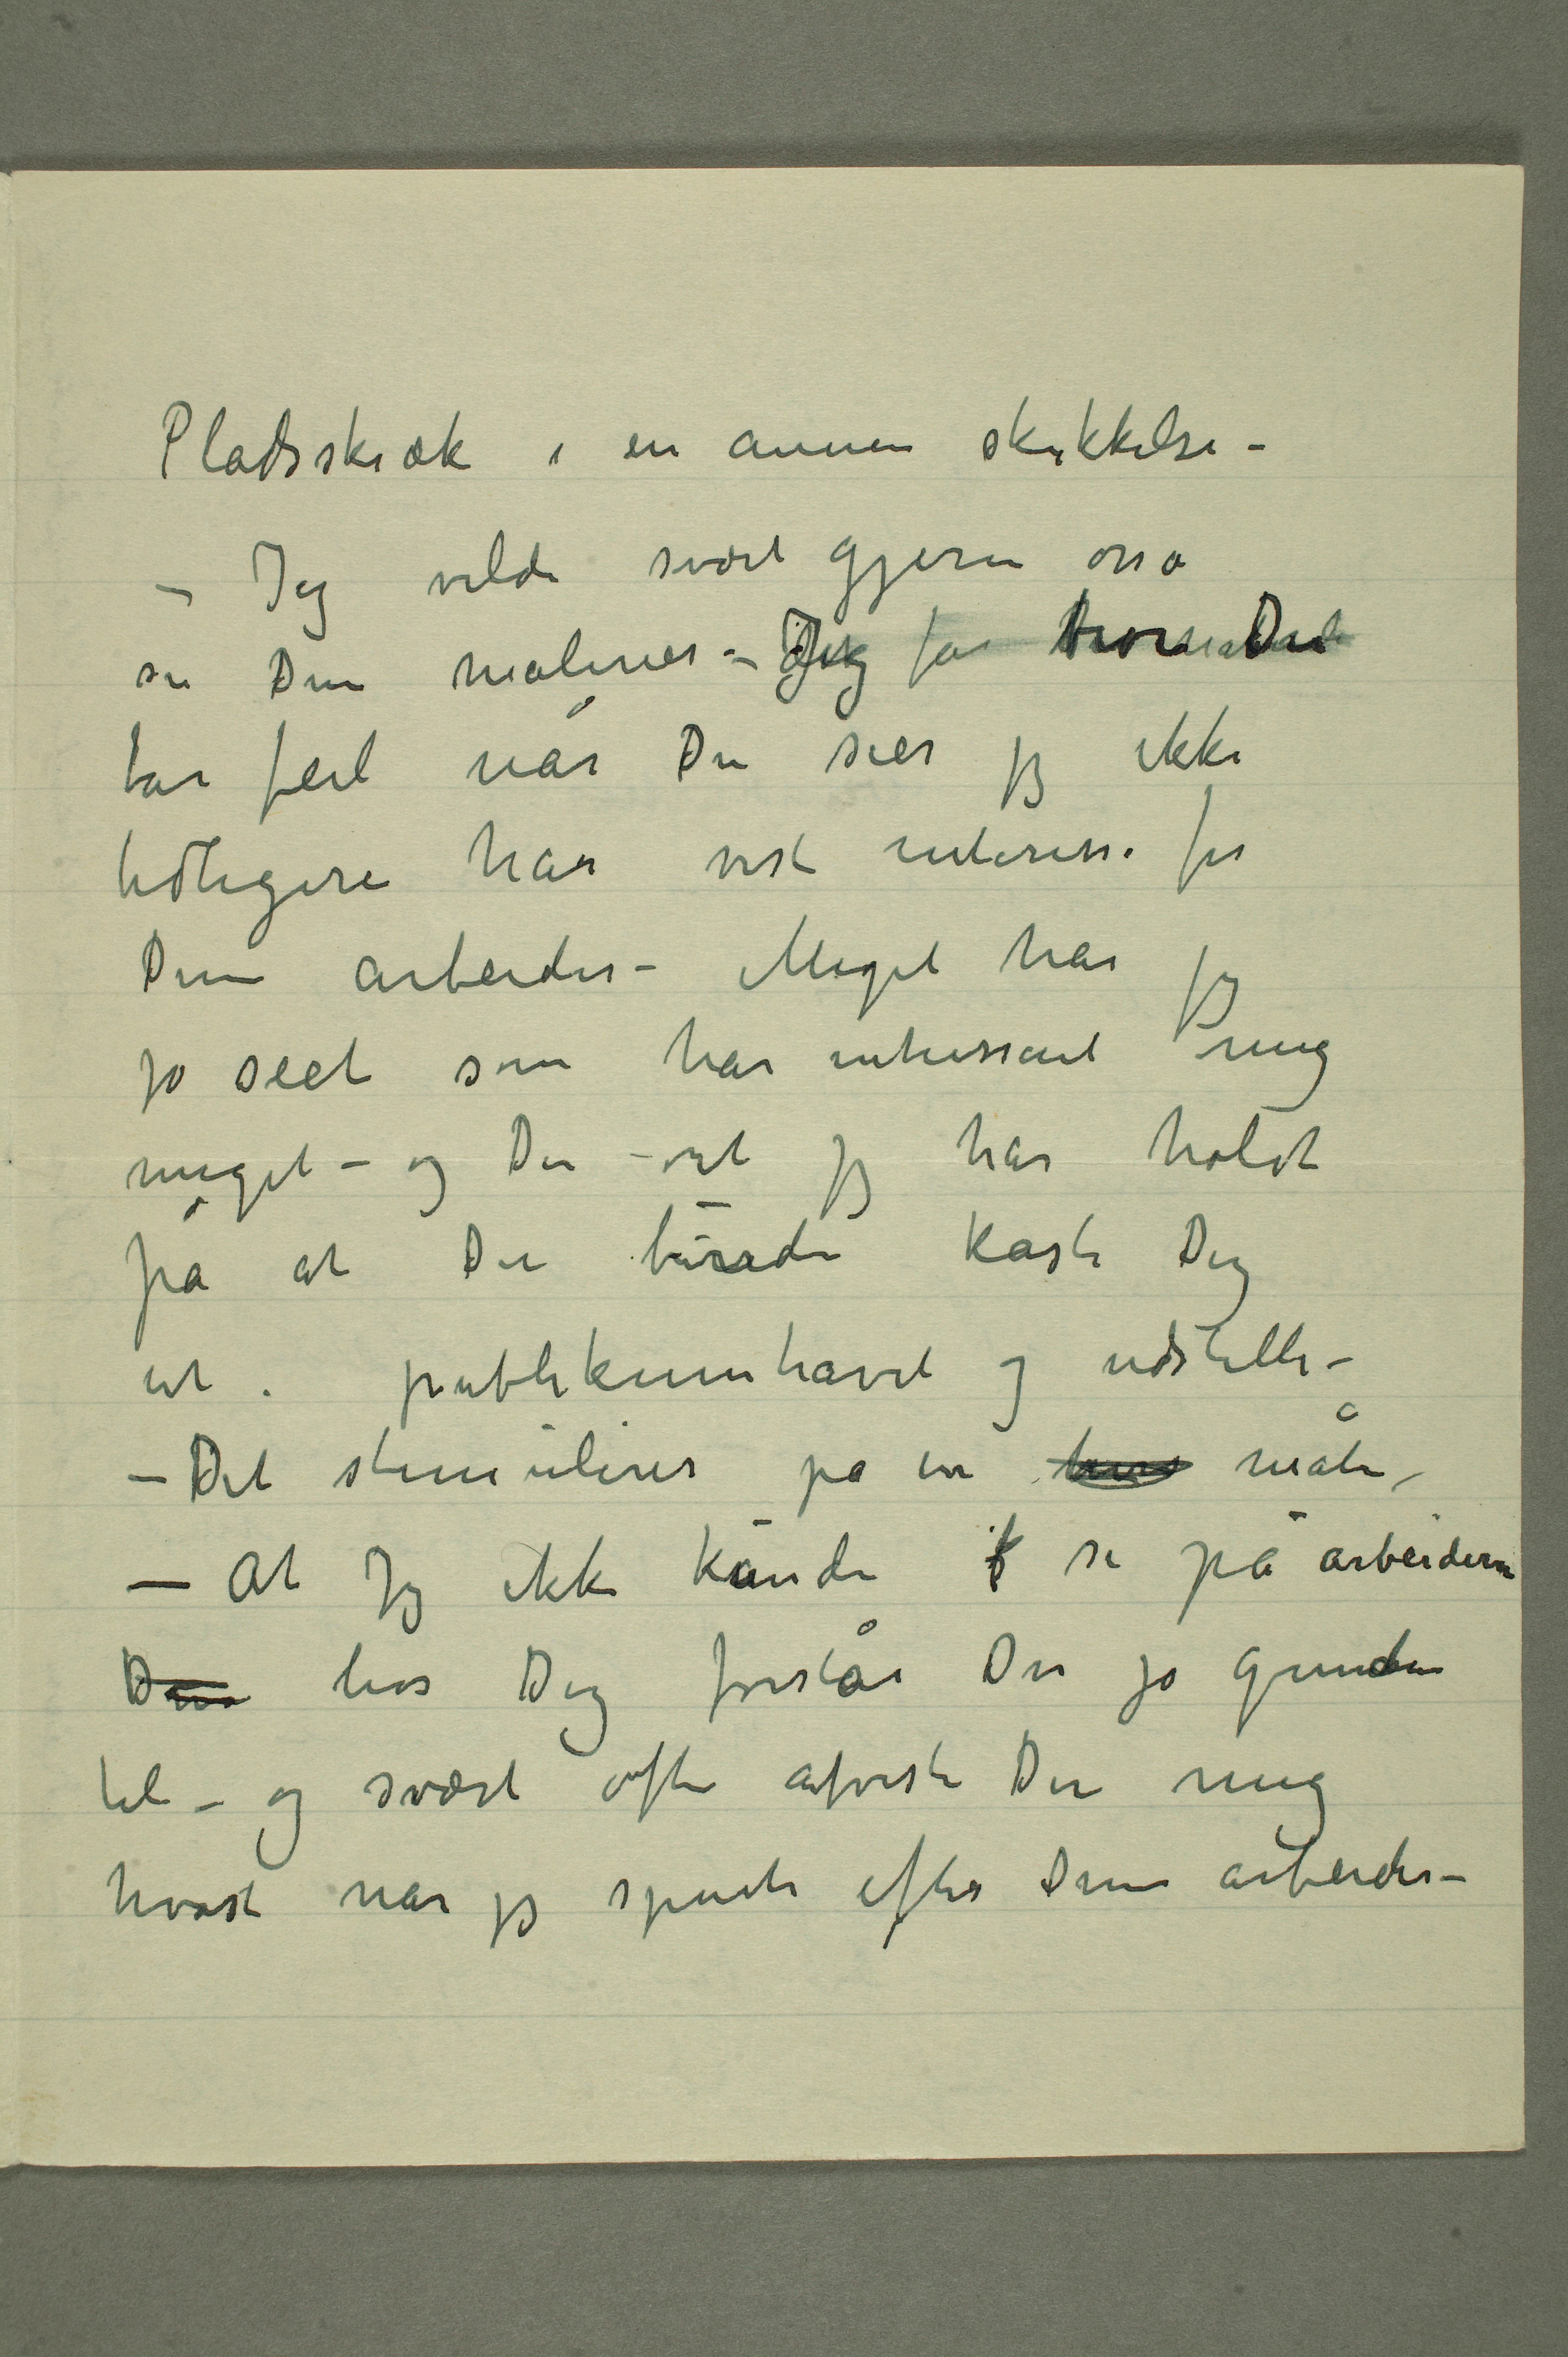 Pladsskræk i en annen skikkelse –
– Jeg vilde svært gjerne osså
se Dine malerier – Jeg tror Du
tar feil når Du sier jeg ikke
tidligere har vist interesse for
Dine arbeider – Meget har jeg
jo seet som har interessert mig
meget – og Du vet jeg har holdt
på at Du burde kaste Dig
ut i publikumhavet og udstille –
– Det stimulerer på en måte,
– At jeg ikke kunde se på arbeiderne
Dine hos Dig forstår Du jo grunden
til – og svært ofte afviste Du mig
hvast når jeg spurte efter Dine arbeider –